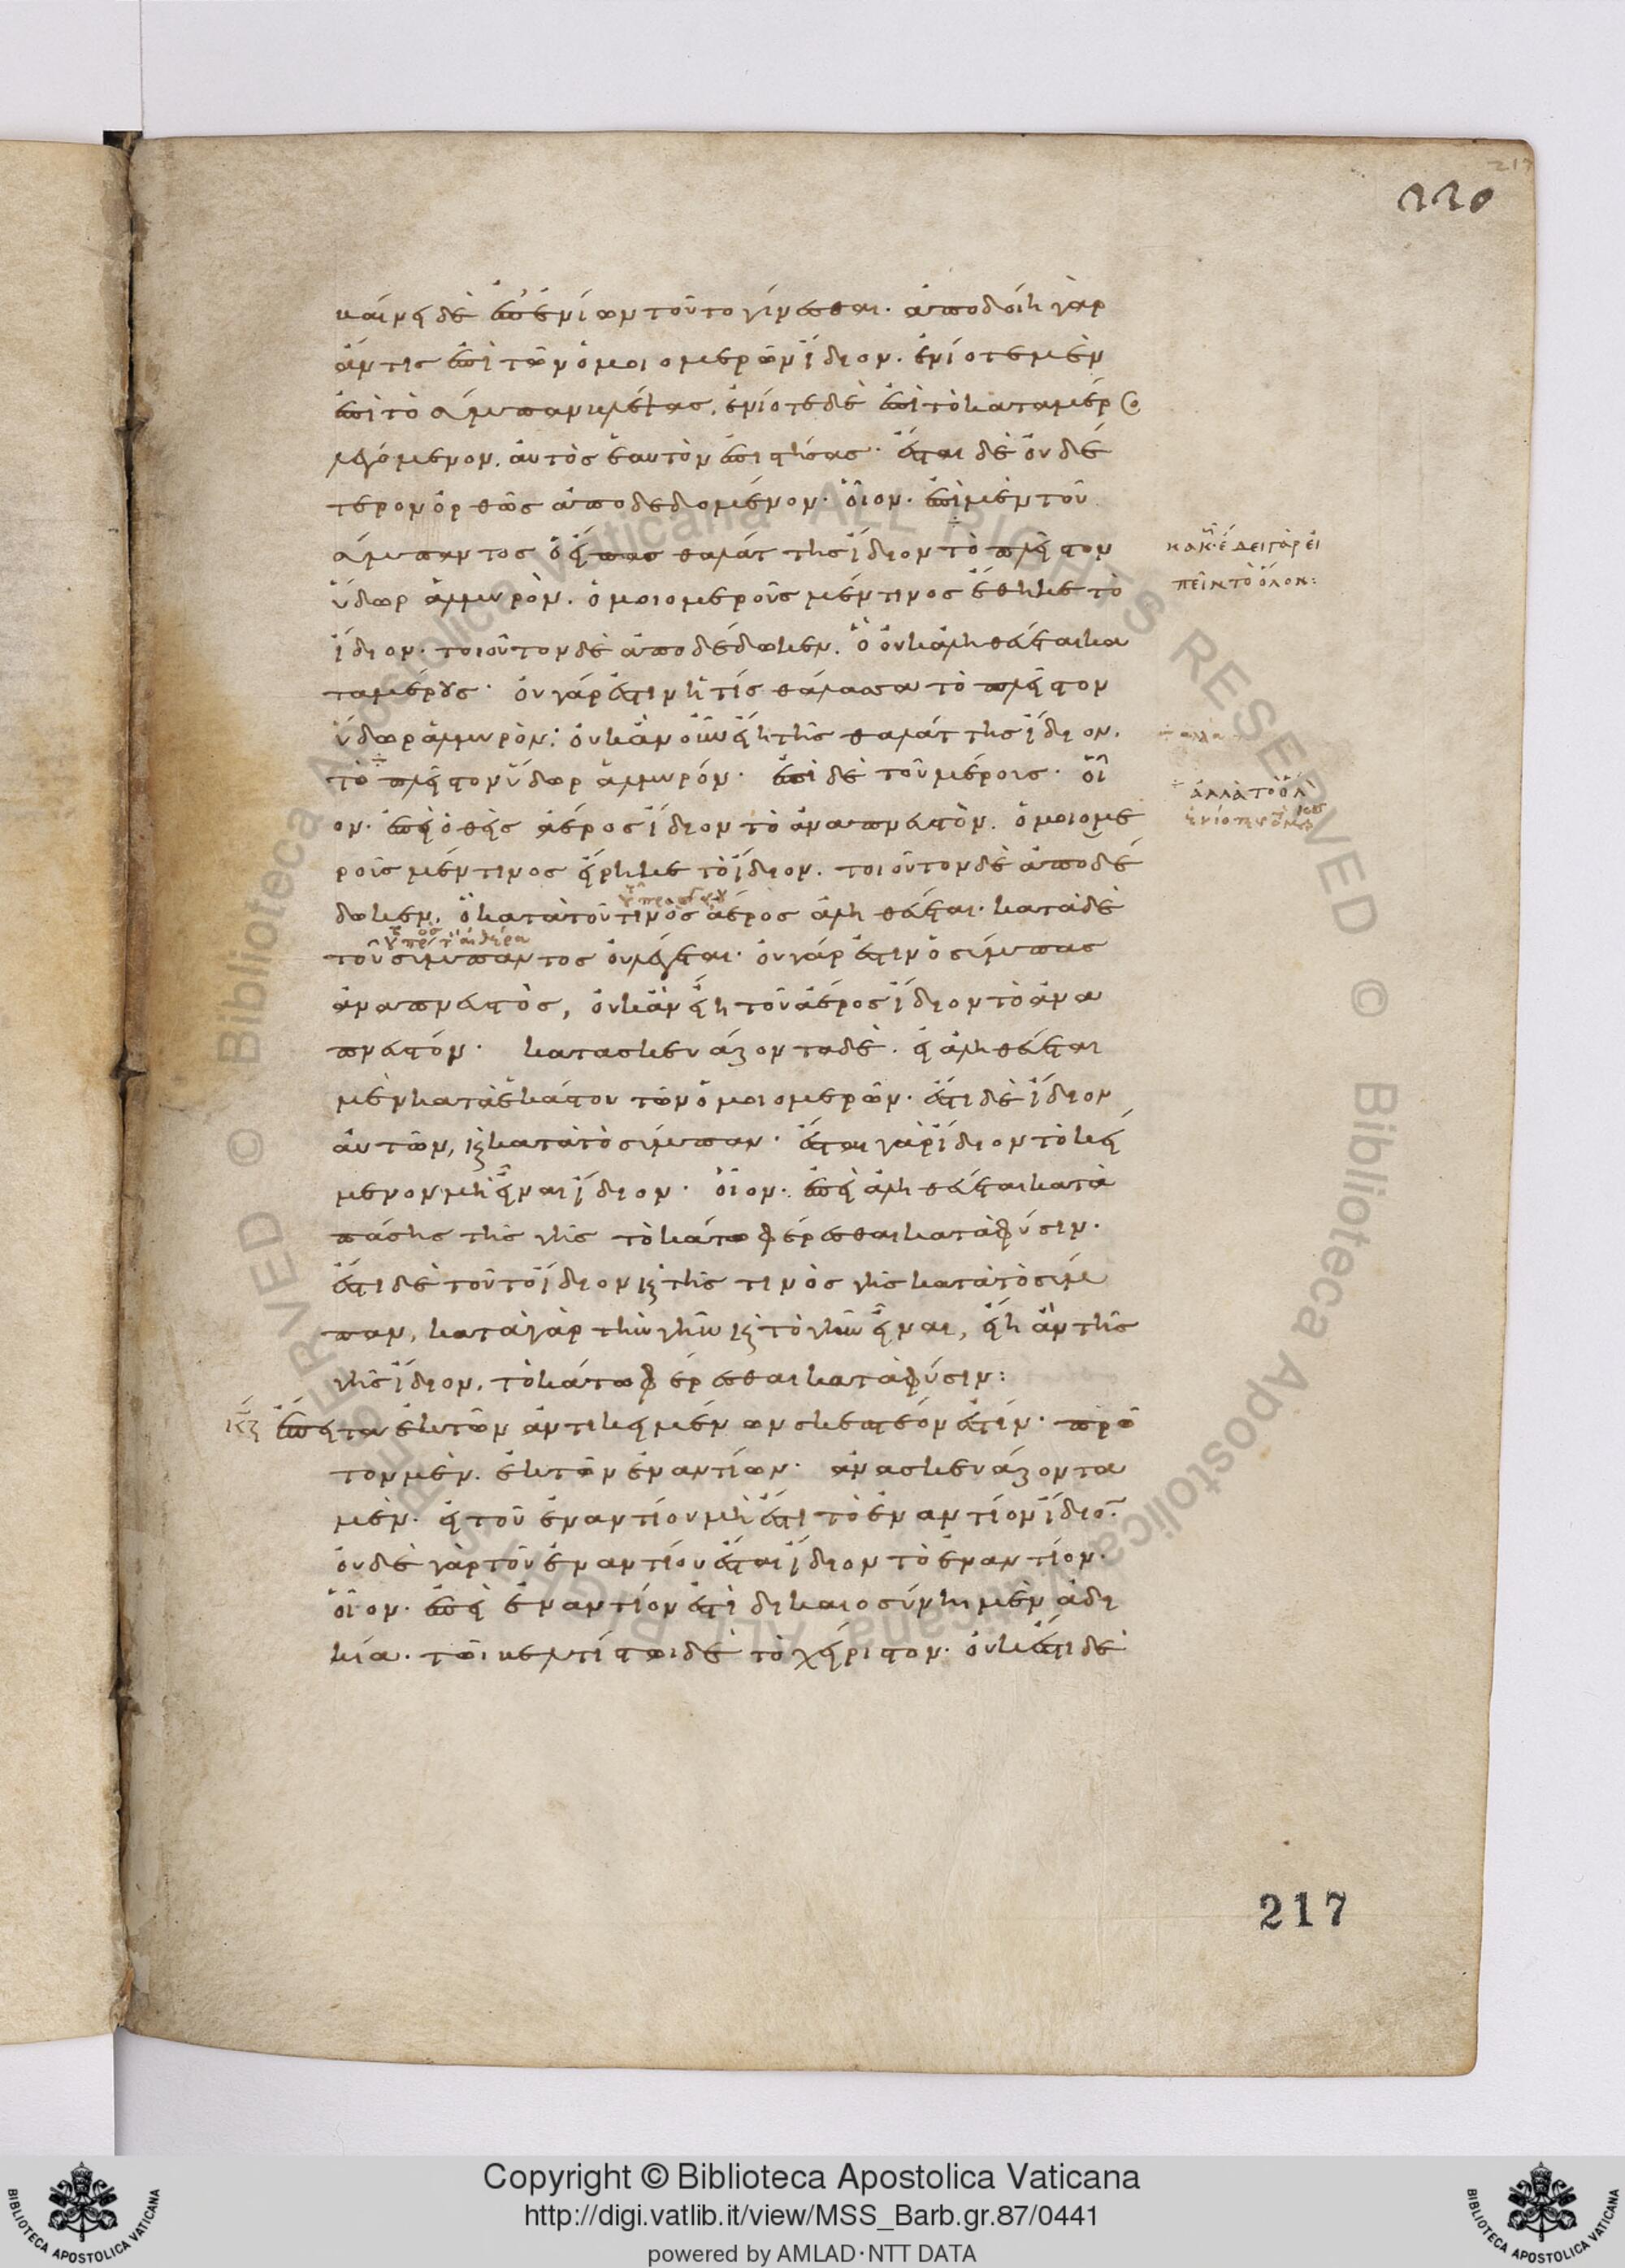 220
βαίνει δὲ ἐπ' ἐνίων τοῦτο γίνεσθαι· ἀποδοίη γὰρ
ἄν τις ἐπὶ τῶν ὁμοιομερῶν ἴδιον. ἐνίοτε μὲν
ἐπὶ τὸ σύμπαν βλέψας. ἐνίοτε δὲ ἐπὶ τὸ κατα μέρος
λεγόμενον. αὐτὸς ἑαυτὸν ἐπιστήσας· ἔσται δὲ οὐδέ
τερον ὀρθῶς ἀποδεδομένον· οἷον· ἐπὶ μὲν τοῦ
σύμπαντος ὁ εἴπας θαλάττης ἴδιον τὸ πλεῖστον
ὕδωρ ἁλμυρὸν. ὁμοιομεροῦς μέν τινος ἔθηκε τὸ
ἴδιον· τοιοῦτον δὲ ἀποδέδωκεν. ὃ οὐκ ἀληθεύεται κα
τα μέρους· οὐ γάρ ἐστιν ἥ τίς θάλασσα τὸ πλεῖστον
ὕδωρ ἁλμυρὸν· οὐκ ἂν οὖν εἴη τῆς θαλάττης ἴδιον.
τὸ πλεῖστον ὕδωρ ἁλμυρόν· ἐπὶ δὲ τοῦ μέρους· οἷ
ον· ἐπεὶ ὁ θεὶς ἀέρος ἴδιον τὸ ἀναπνευστὸν. ὁμοιομε
ροῦς μέν τινος εἴρηκε τὸ ἴδιον. τοιοῦτον δὲ ἀποδέ
δωκεν. ὃ κατὰ τοῦ τινὸς ἀέρος ἀληθεύεται· κατὰ δὲ
τοῦ σύμπαντος οὐ λέγεται· οὐ γάρ ἐστιν ὁ σύμπας
ἀναπνευστὸς, οὐκ ἂν εἴη τοῦ ἀέρος ἴδιον τὸ ἀνα
πνευστόν· κατασκευάζοντα δὲ. εἰ ἀληθεύεται
μὲν κατὰ ἑκάστου τῶν ὁμοιομερῶν· ἔστι δὲ ἴδιον
αὐτῶν, κατὰ τὸ σύμπαν· ἔσται γὰρ ἴδιον τὸ κεί
μενον μὴ εἶναι ἴδιον· οἷον. ἐπεὶ ἀληθεύεται κατὰ
πάσης τῆς γῆς τὸ κάτω φέρεσθαι κατὰ φύσιν·
ἔστι δὲ τοῦτο ἴδιον καὶ τῆς τινὸς γῆς κατὰ τὸ σύμ
παν, κατὰ γὰρ τὴν γῆν καὶ τὸ γῆν εἶναι, εἴη ἂν τῆς
γῆς ἴδιον. τὸ κάτω φέρεσθαι κατὰ φύσιν:
ἔπειτα ἐκ τῶν ἀντικειμένων σκεπτεόν ἐστίν· πρῶ
τον μὲν. ἐκ τῶν ἐναντίων· ἀνασκευάζοντα
μὲν· εἰ τοῦ ἐναντίου μὴ ἔστι τὸ ἐναντίον ἴδιον.
οὐδὲ γὰρ τοῦ ἐναντίου ἔσται ἴδιον τὸ ἐναντίον·
οἷον· ἐπεὶ ἐναντίον ἐστὶ δικαιοσύνηι μὲν ἀδι
κία· τῶι βελτίστωι δὲ τὸ χείριστον· οὐκ ἔστι δὲ
ἔδει γὰρ εἰ
πεῖν τὸ ὅλον:
ἀλλὰ τὸ ὅλον
217
Copyright © Biblioteca Apostolica Vaticana
http://digi.vatlib.it/view/MSS_Barb.gr.87/0441
powered by AMLAD·NTT DATA